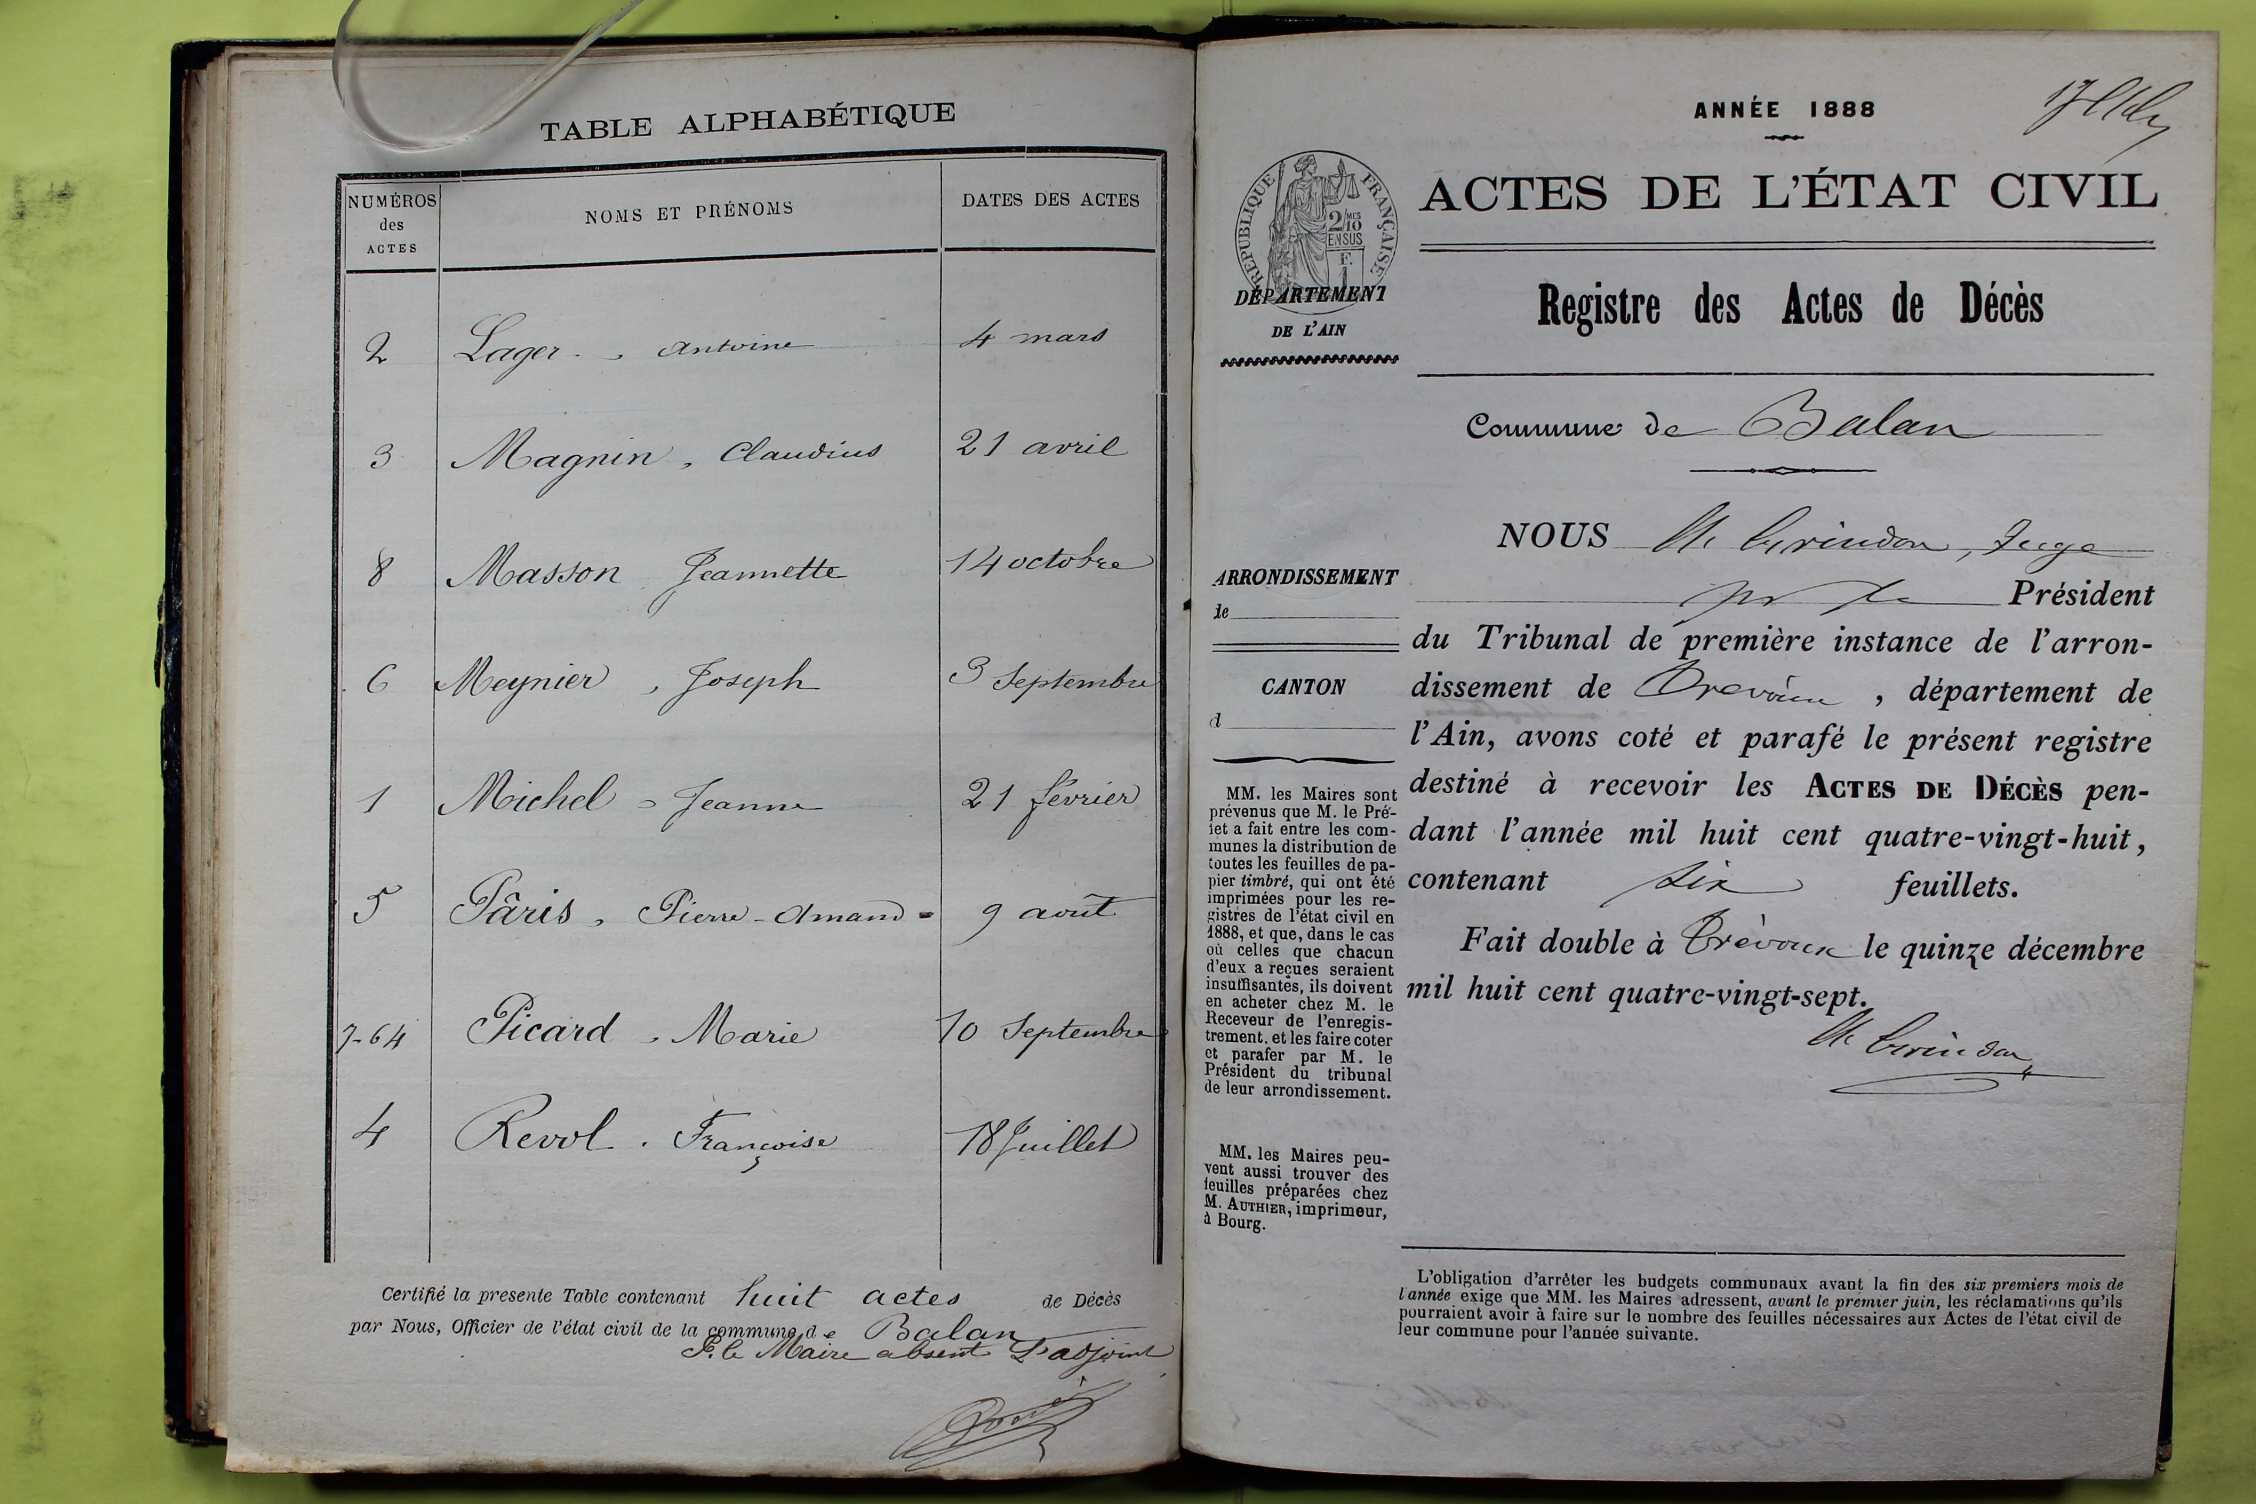 TABLE ALPHABÉTIQUE
NUMÉROS des ACTES NOMS ET PRÉNOMS DATES DES ACTES
2 Lager - Antoine 4 mars
3 Magnin, Claudius 21 avril
8 Masson Jeannette 14 octobre
6 Meynier, Joseph 3 Septembre
1 Michel - Jeanne 21 février
5 Pâris, Pierre-Amand - 9 août
7-64 Picard, Marie 10 Septembre
4 Revol. Françoise 18 Juillet
Certifié la presente Table contenant huit actes de Décès
par Nous, Officier de l'état civil de la commune de Balan
P. le Maire absent L'adjoint
ANNÉE 1888
RÉPUBLIQUE FRANÇAISE
2/10 MES
EN SUS
F.
1
ACTES DE L'ÉTAT CIVIL
DÉPARTEMENT
DE L'AIN
Registre des Actes de Décès
Commune de Balan
ARRONDISSEMENT
de
CANTON
d
MM. les Maires sont
prévenus que M. le Pré-
fet a fait entre les com-
munes la distribution de
toutes les feuilles de pa-
pier timbré, qui ont été
imprimées pour les re-
gistres de l'état civil en
1888, et que, dans le cas
où celles que chacun
d'eux a reçues seraient
insuffisantes, ils doivent
en acheter chez M. le
Receveur de l'enregis-
trement, et les faire coter
et parafer par M. le
Président du tribunal
de leur arrondissement.
MM. les Maires peu-
vent aussi trouver des
feuilles préparées chez
M. AUTHIER, imprimeur,
à Bourg.
NOUS M Grindon, Juge
pr le Président
du Tribunal de première instance de l'arron-
dissement de Trévoux, département de
l'Ain, avons coté et parafé le présent registre
destiné à recevoir les ACTES DE DÉCÈS pen-
dant l'année mil huit cent quatre-vingt-huit,
contenant six feuillets.
Fait double à Trévoux le quinze décembre
mil huit cent quatre-vingt-sept.
M Grindon
L'obligation d'arrêter les budgets communaux avant la fin des six premiers mois de
l'année exige que MM. les Maires adressent, avant le premier juin, les réclamations qu'ils
pourraient avoir à faire sur le nombre des feuilles nécessaires aux Actes de l'état civil de
leur commune pour l'année suivante.